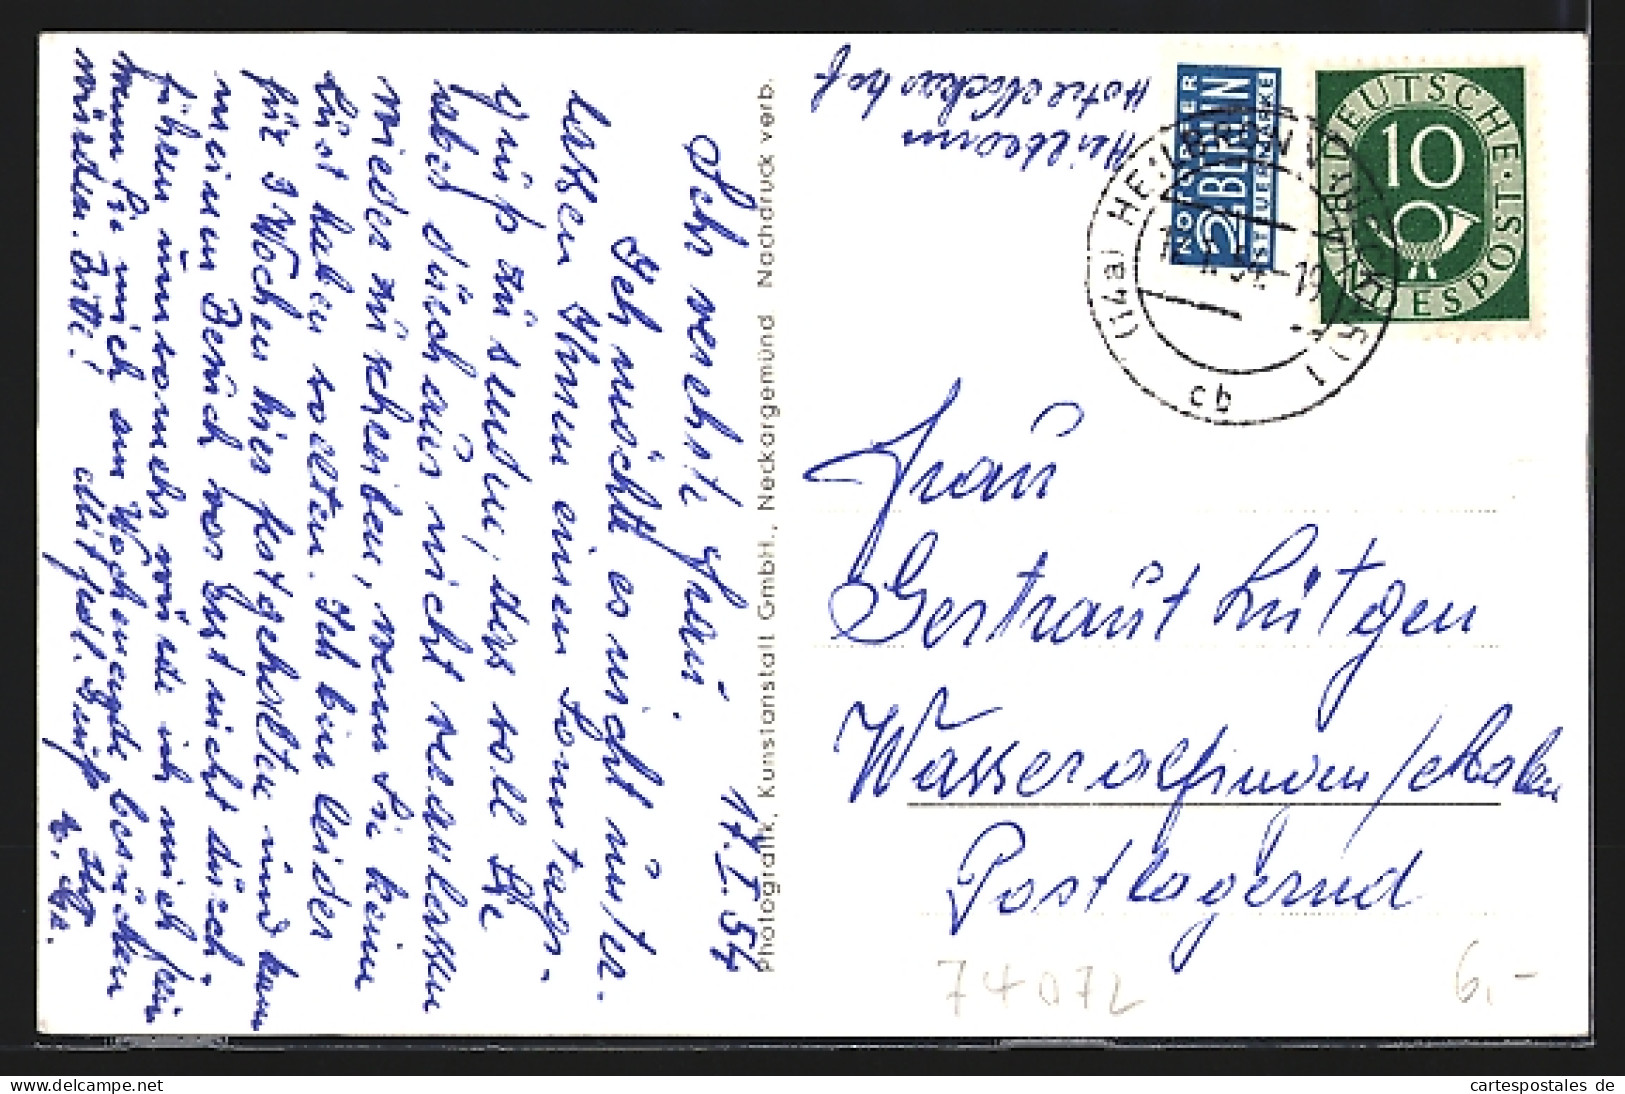 Heilbronn
Hotel Neckarhof
NOTOPFER
2 BERLIN
STEUERMARKE
DEUTSCHE
10
BUNDESPOST
(14a) HEILBRONN
cb
Sehr verehrte Frau.
17.I.54
Ich möchte es nicht unter-
lassen Ihnen einen Sonntags-
gruß zu senden, das soll Sie
aber durchaus nicht veranlassen
wieder zu schreiben, wenn Sie keine
Lust haben sollten. Ich bin leider
für 3 Wochen hier festgehalten und kann
meinen Besuch vorerst nicht durch-
führen umsomehr würde ich mich freuen
wenn Sie mich am Wochenende besuchen
würden. Bitte!
Mit frdl. Gruß
Photografik, Kunstanstalt GmbH., Neckargemünd Nachdruck verb.
Frau
Gertraut Lütgen
Wasseralfingen/Aalen
Postlagernd
74072
6,-
delcampe.net
cartespostales de